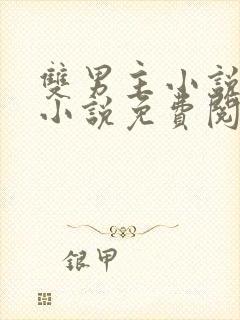 雙男主小說
小說免費閱
银甲